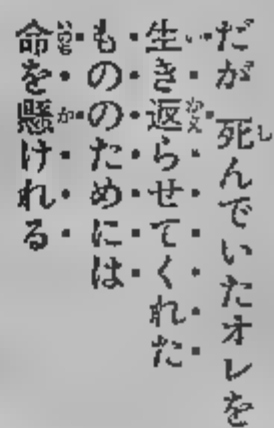 だが 死んでいたオレを
生き返らせてくれた
もののためには
命を懸けれる